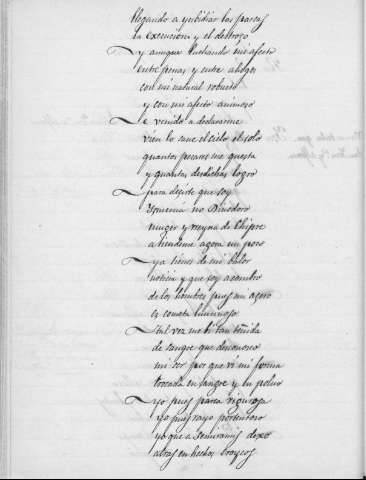 llegando a ynbidiar las parcas
la execucion y el destrozo
y aunque luchando mi afecto
entre penas y entre ahogos
con mi natural robusto
y con mi afecto animoso
e venido a declararme
vien lo save el cielo el solo
quantos pesares me questa
y quantas desdichas logro
para decirte que soy
Ysmenia no Dinodoro
muger y reyna de Chipre
atiendeme agora un poco
ya tienes de mi balor
noticia y que soy asombro
de los hombres pues mi azero
es cometa luminoso
tal vez me bi tan teñida
de sangre que desconozco
mi ser por que vi mi forma
trocada en sangre y en polvo
yo pues parca rigurosa
yo pues rayo portentoso
yo que a Semiramis dexo
atras en hechos eroycos